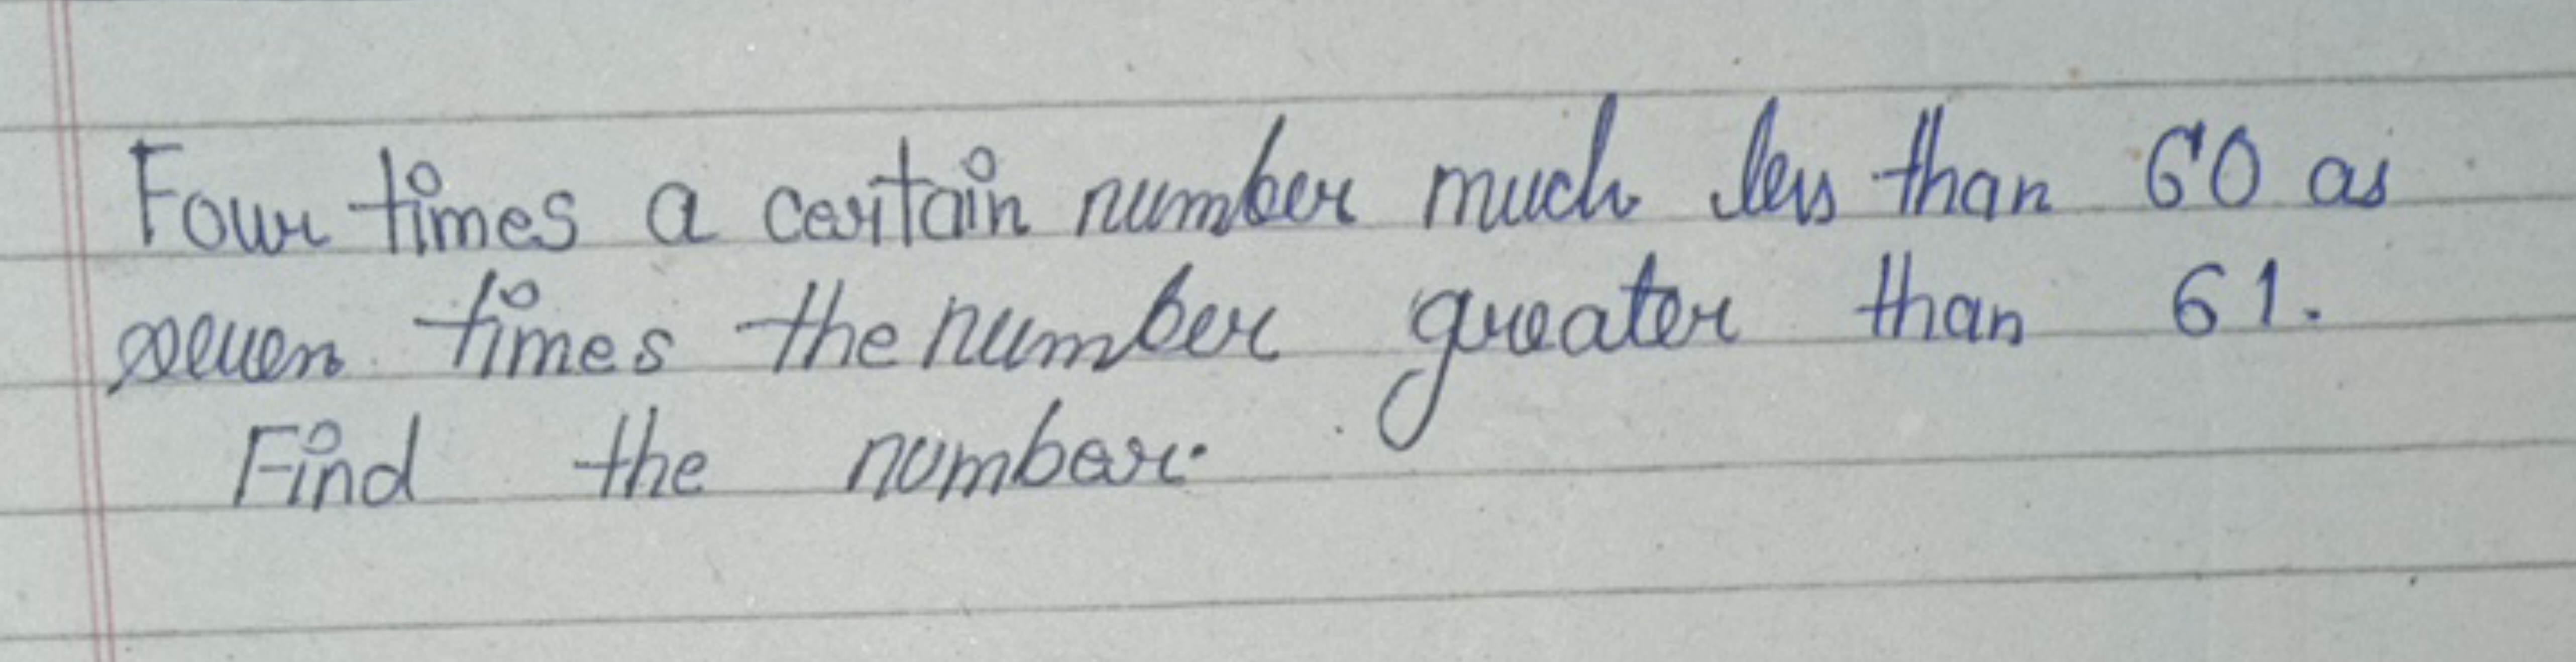 Four times a certain number much less than 60 as
seven times the number greater than 61.
Find the number.